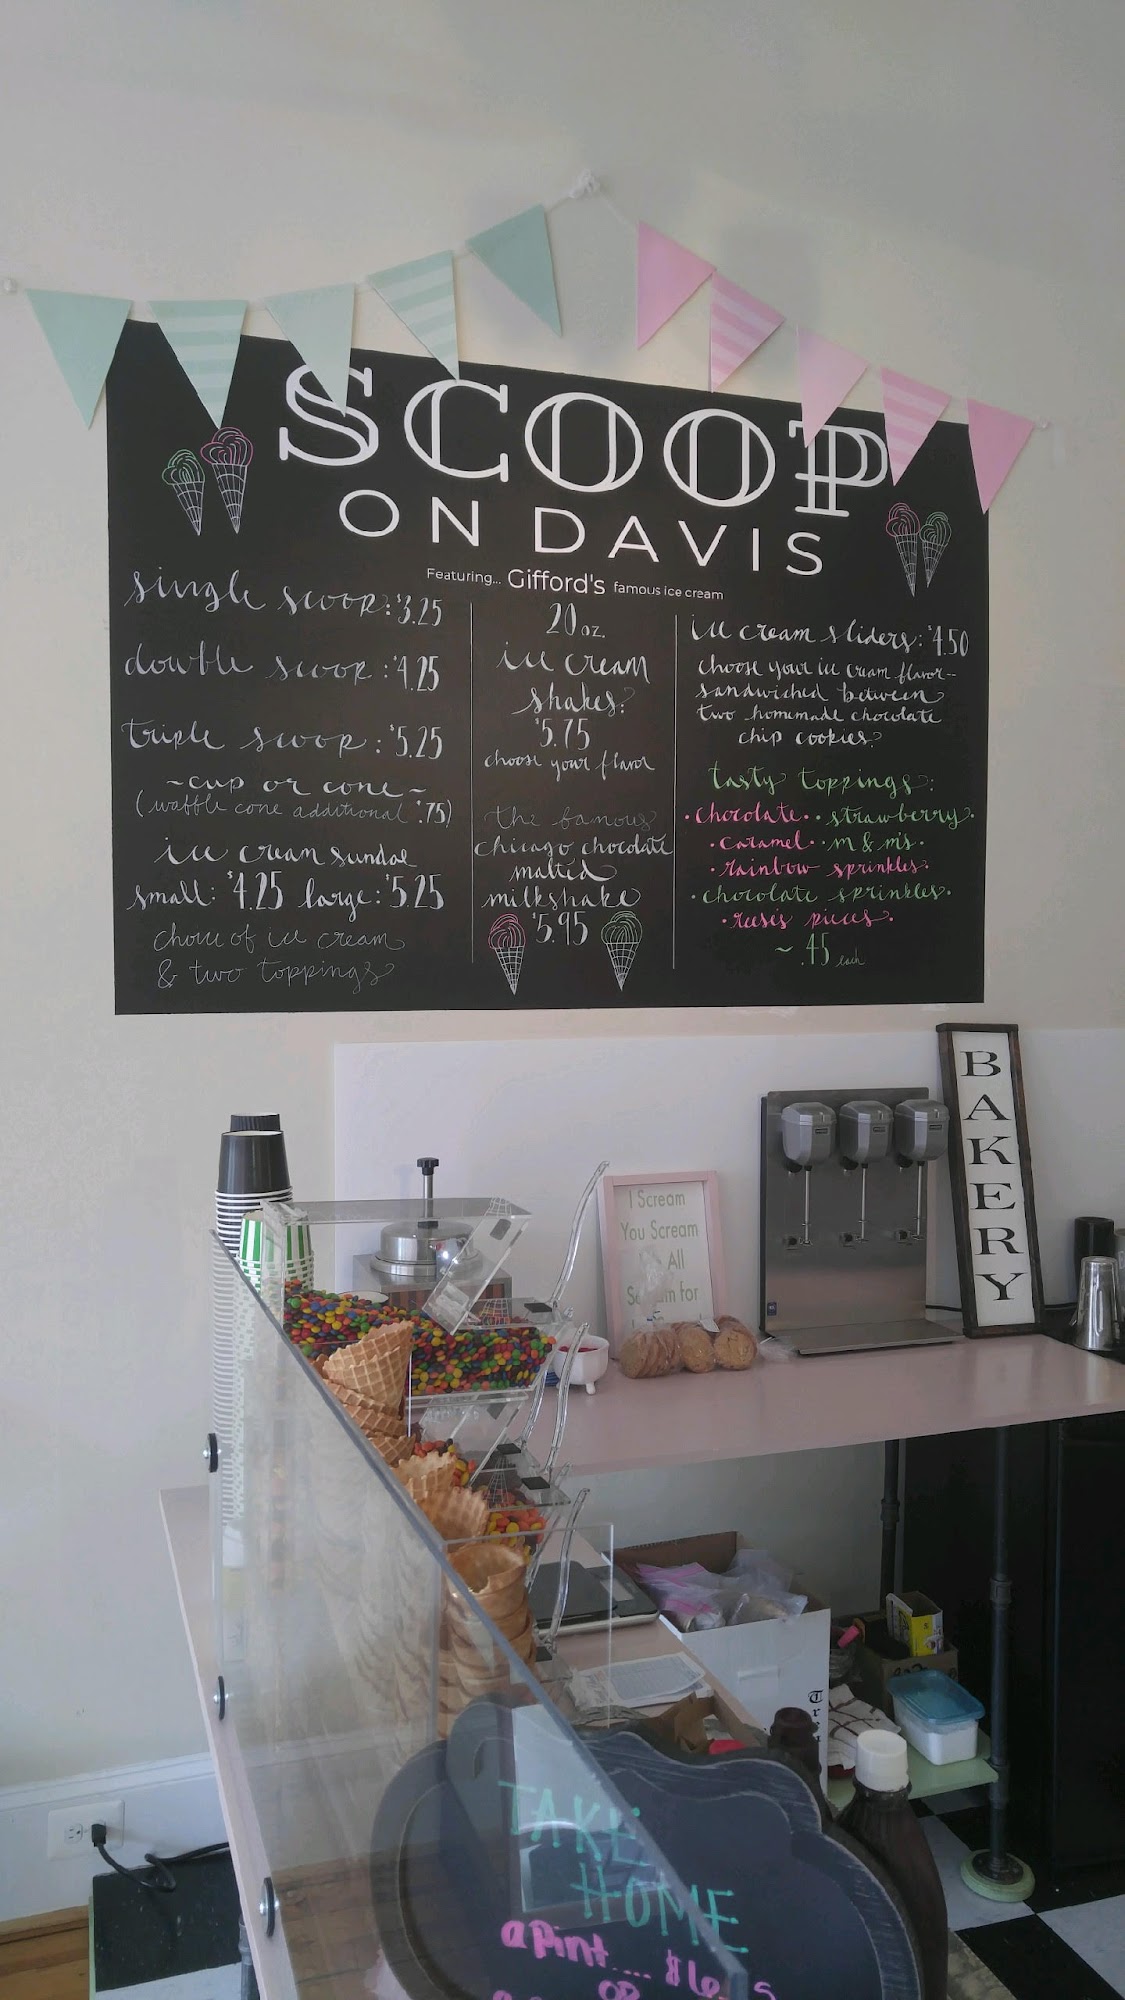 SCOOP
ON DAVIS
Featuring... Gifford's famous ice cream
single scoop: $3.25
double scoop: $4.25
triple scoop: $5.25
~cup or cone~
(waffle cone additional $.75)
ice cream sundae
small: $4.25 large: $5.25
choice of ice cream
& two toppings
20 oz.
ice cream
shakes:
$5.75
choose your flavor
the famous
chicago chocolate
malted
milkshake
$5.95
ice cream sliders: $4.50
choose your ice cream flavor--
sandwiched between
two homemade chocolate
chip cookies
tasty toppings:
• chocolate • • strawberry •
• caramel • • m & m's •
• rainbow sprinkles •
• chocolate sprinkles •
• reese's pieces •
~ .45 each
BAKERY
I Scream
You Scream
All
for
TAKE
HOME
a Pint....
OR